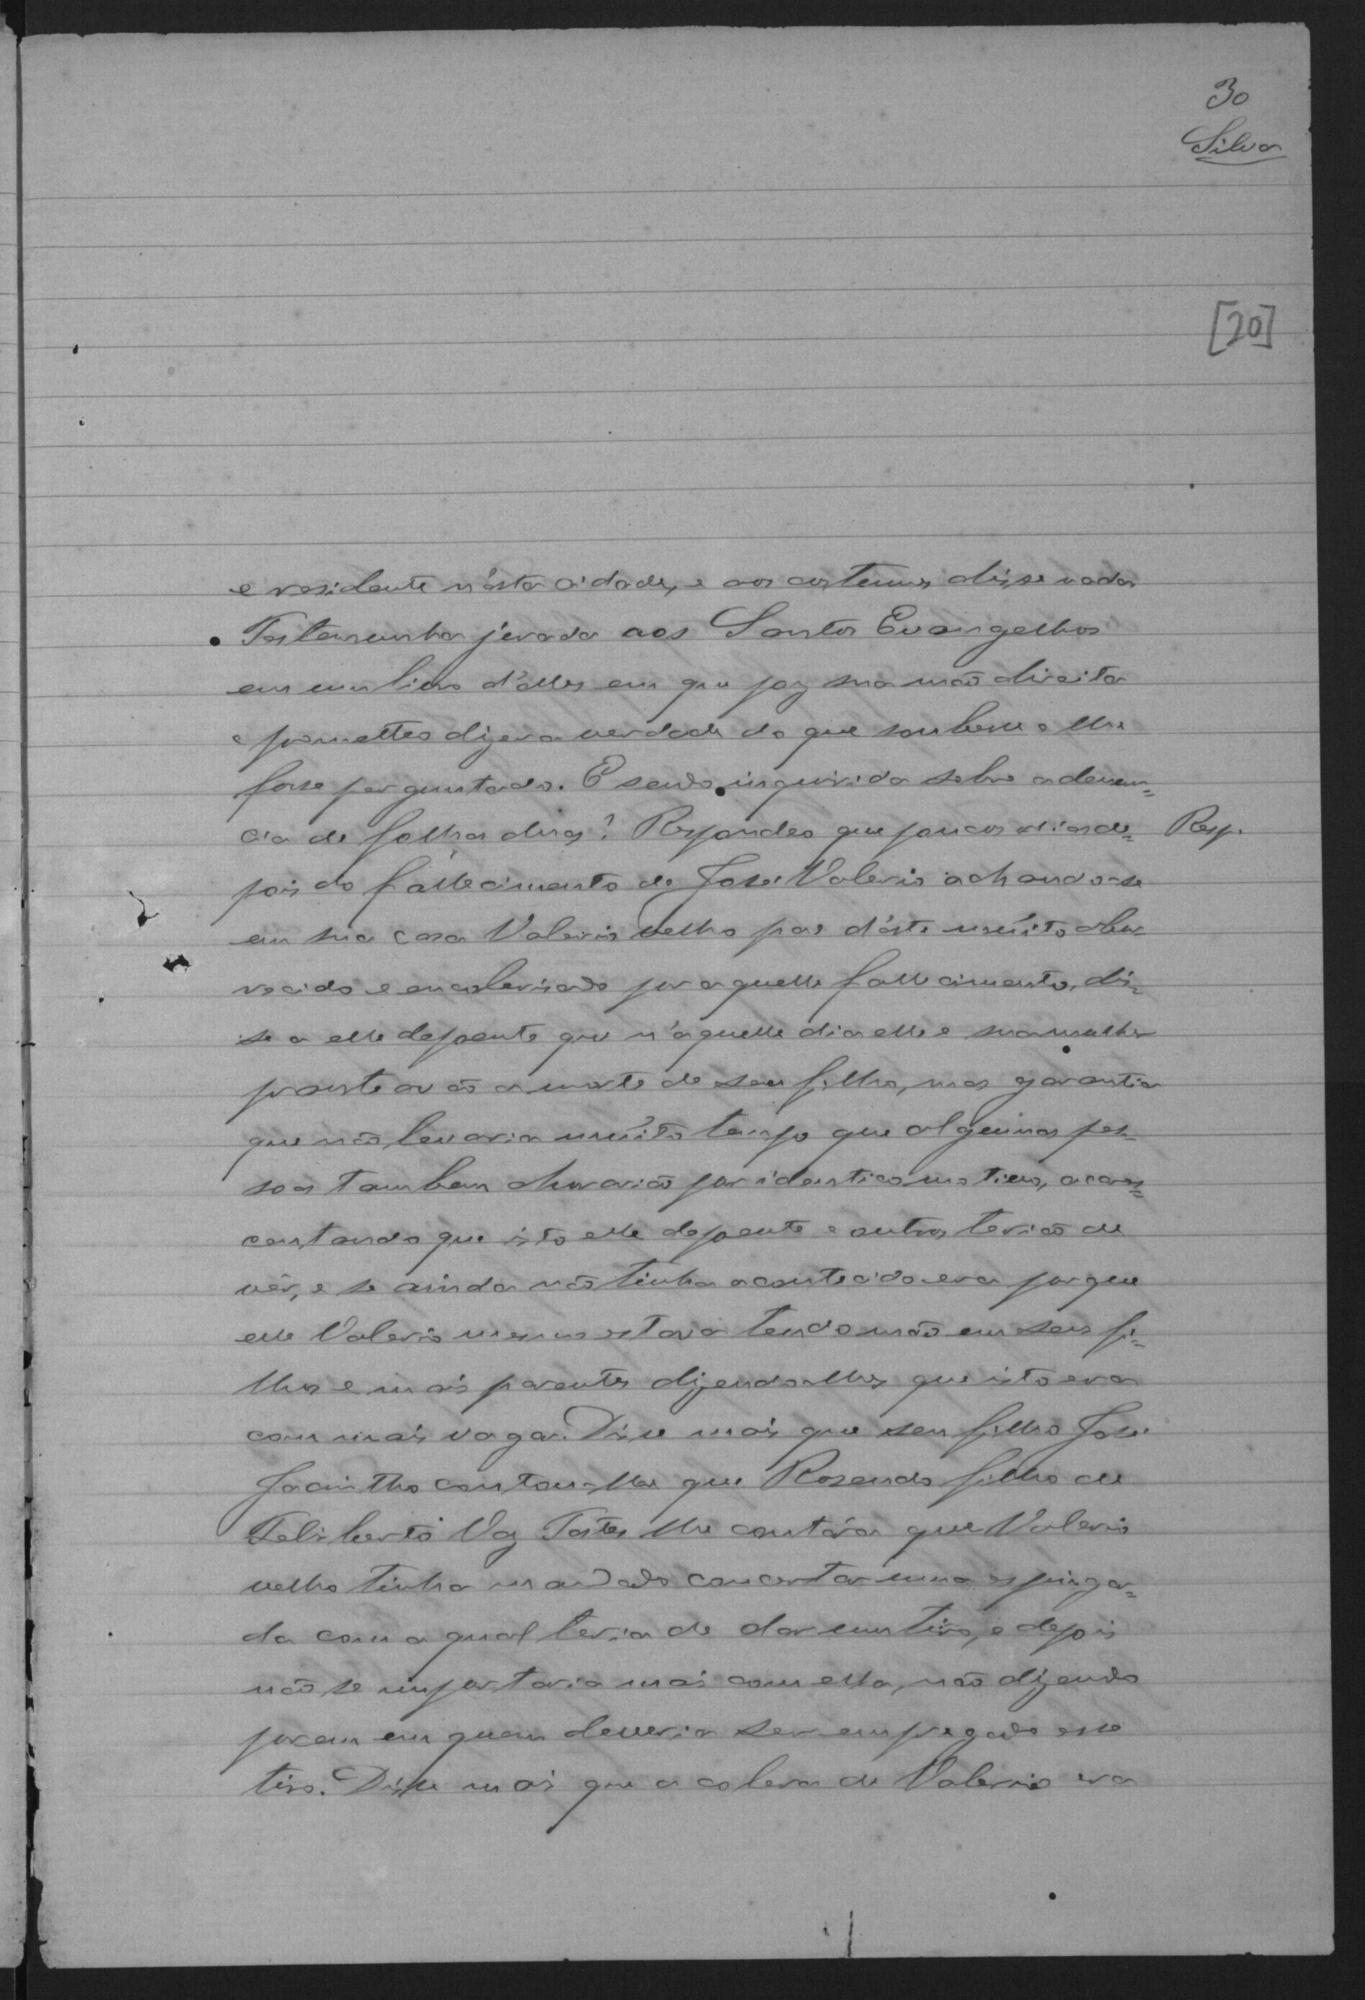 30
Silva
[20]
e residente n'ésta cidade, e aos costumes disse nada
Testemunha jurada aos Santos Evangelhos
em um livro d'elles em que poz sua mão direita
e prometteo dizer a verdade do que soubesse e lhe
fosse perguntado. E sendo inquirida sobre a denun=
cia de folhas duas? Respondeo que poucos dias de= Resp.
pois do fallecimento de José Valerio achando-se
em sua casa Valerio velho pae d'éste muito abor
recido e encolerisado por aquelle fallecimento, dis=
se a elle depoente que n'aquelle dia elle e sua mulher
pranteavão a morte de seu filho, mas garantia
que não levaria muito tempo que algumas pes=
soas tambem chorarião por identico motivo, acres=
centando que isto elle depoente e outros terião de
vêr, e se ainda não tinha acontecido era porque
elle Valerio mesmo estava tendo mão em seus fi=
lhos e mais parentes dizendo-lhes que isto era
com mais vagar. Disse mais que seu filho José
Jacintho contou-lhe que Rosendo filho de
Feliberto Vaz Tostes lhe contára que Valerio
velho tinha mandado concertar uma espingar=
da com a qual teria de dar um tiro, e depois
não se importaria mais com ella, não dizendo
porem em quem deveria ser empregado esse
tiro. Disse mais que a colera de Valerio era